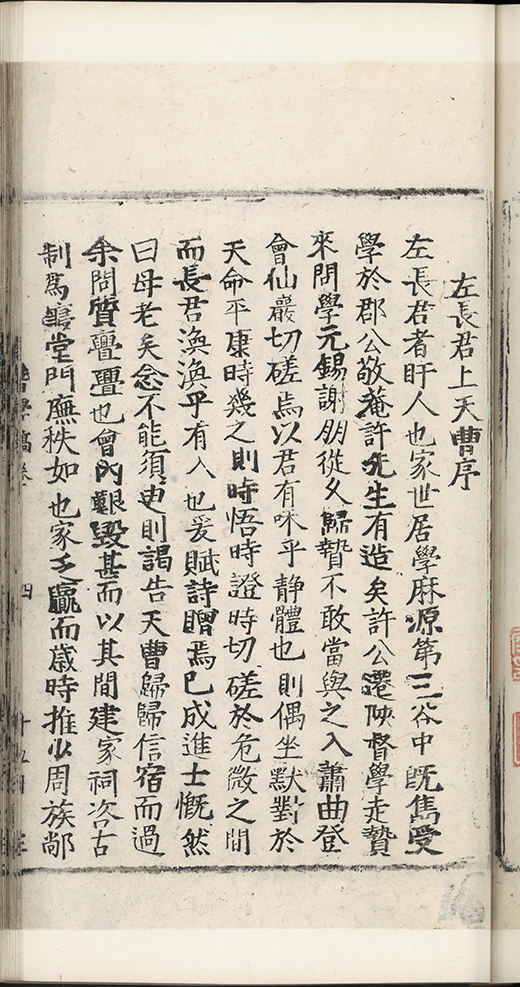 左長君上天曹序
左長君者盱人也家世居學麻源第三谷中既雋受
學於郡公敬菴許先生有造矣許公遷陝督學走贄
來問學元錫謝朋從乆歸贄不敢當與之入蕭曲登
會仙巖切磋焉以君有味乎靜體也則偶坐默對於
天命平康時幾之則時悟時證時切磋於危微之間
而長君渙渙乎有入也爰賦詩贈焉已成進士慨然
曰母老矣念不能須臾則謁告天曹歸歸信宿而過
余問質亹亹也會內艱毀甚而以其間建家祠咨古
制為寢堂門廡秩如也家乏贏而歲時推少周族鄰
學稿卷
四